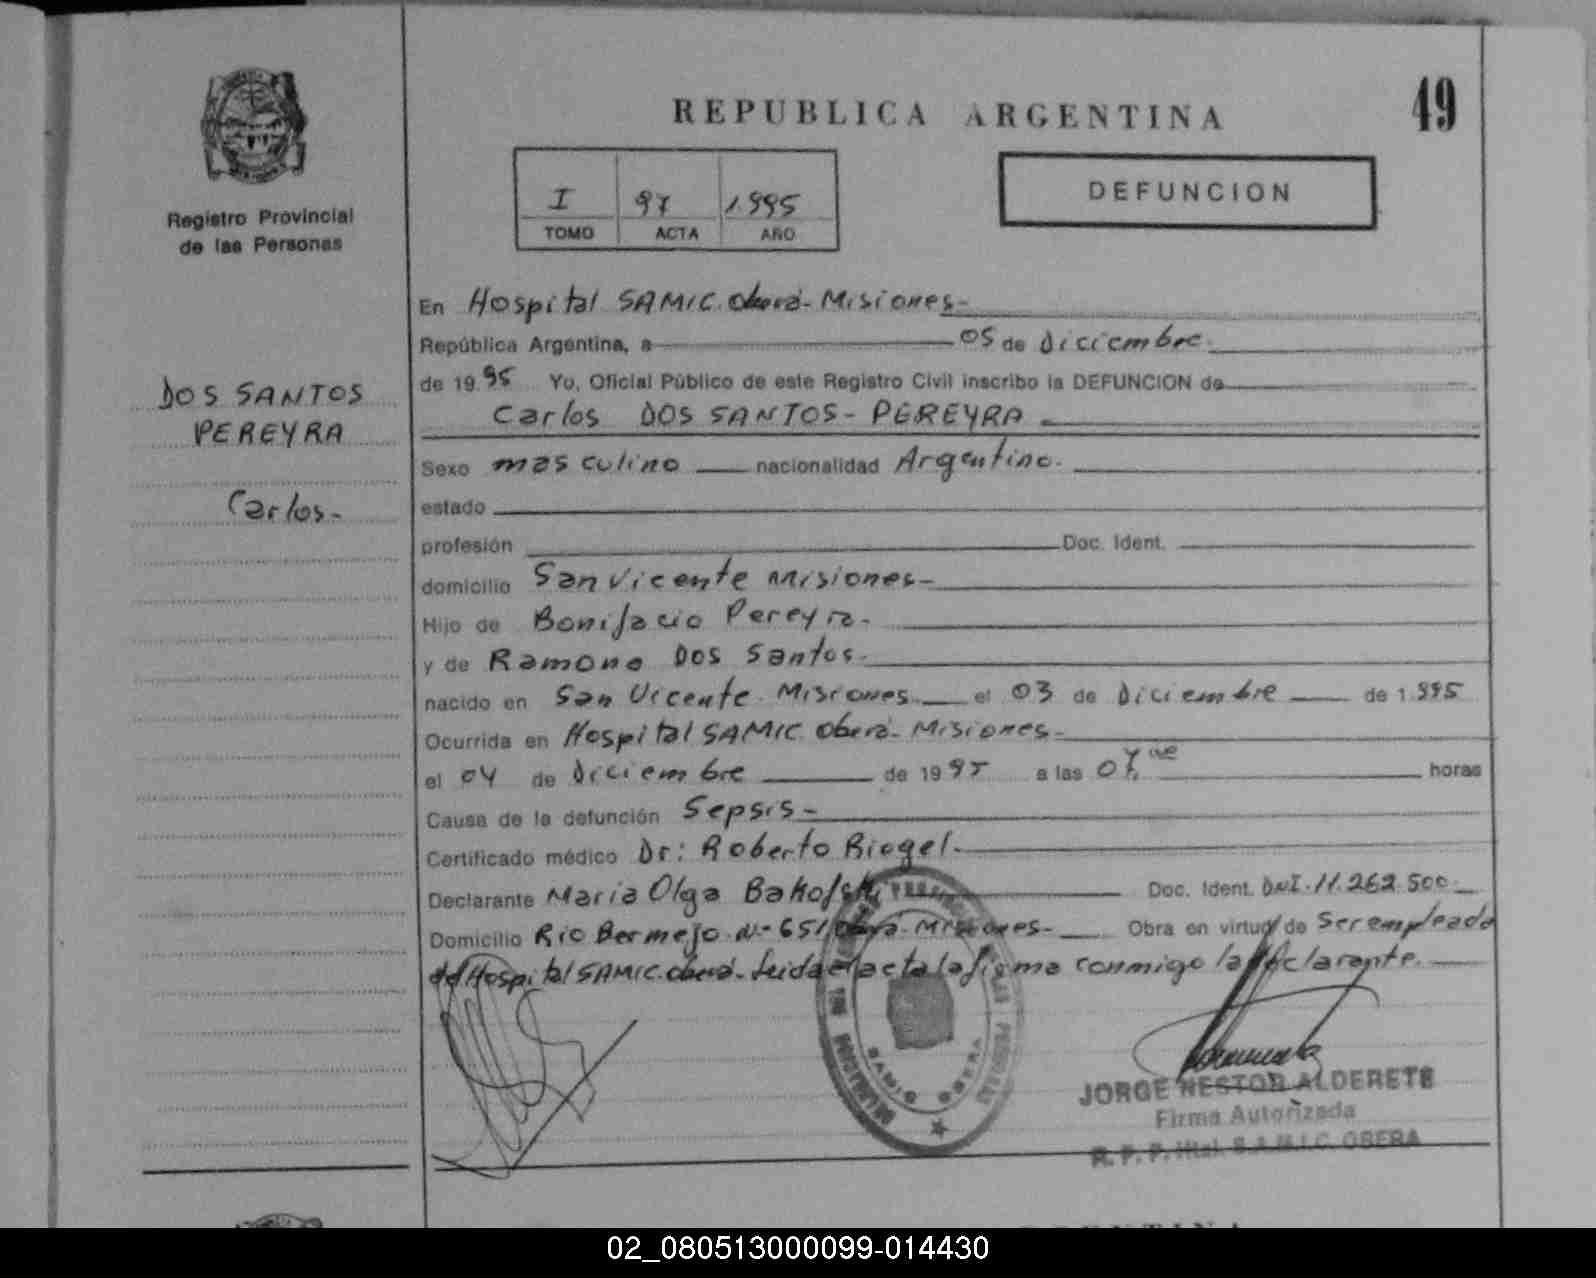 REPUBLICA ARGENTINA
49
Registro Provincial
de las Personas
I 97 1.995
TOMO ACTA AÑO
DEFUNCION
DOS SANTOS
PEREYRA
Carlos-
En Hospital SAMIC. Oberá- Misiones-
República Argentina, a 05 de diciembre.
de 19 95 Yo, Oficial Público de este Registro Civil inscribo la DEFUNCION de
Carlos DOS SANTOS- PEREYRA
Sexo masculino nacionalidad Argentino.
estado
profesión Doc. Ident.
domicilio San Vicente Misiones-
Hijo de Bonifacio Pereyra-
y de Ramona Dos Santos.
nacido en San Vicente. Misiones. el 03 de Diciembre de 1.995
Ocurrida en Hospital SAMIC. Oberá- Misiones-
el 04 de Diciembre de 19 95 a las 07, horas
Causa de la defunción Sepsis-
Certificado médico Dr: Roberto Riogel-
Declarante Maria Olga Bakofski Doc. Ident. DNI. 11.262.500-
Domicilio Rio Bermejo Nº 651 Oberá- Misiones- Obra en virtud de Ser empleada
del Hospital SAMIC. Oberá- Leida el acta la firma conmigo la declarante.
SAMIC OBERA
JORGE NESTOR ALDERETE
Firma Autorizada
R. P. P. Htal. S.A.M.I.C. OBERA
02_080513000099-014430